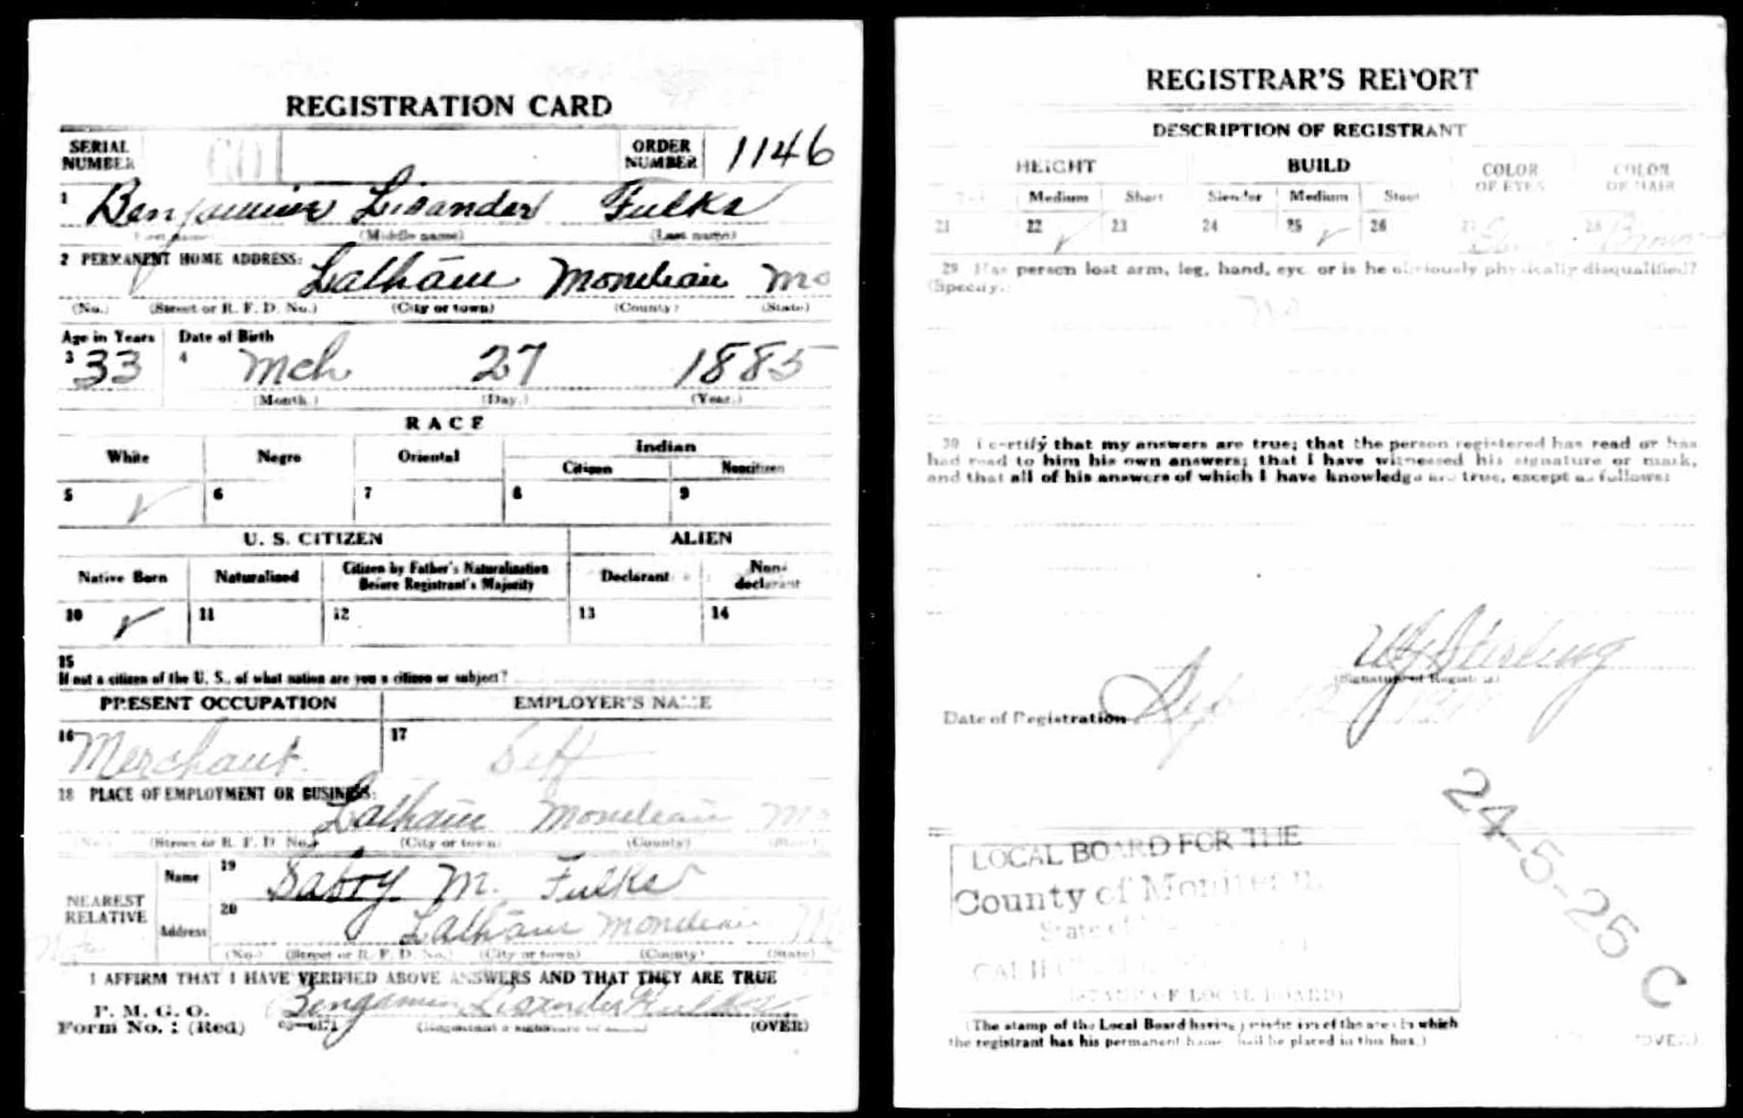 REGISTRATION CARD
SERIAL NUMBER
ORDER NUMBER 1146
1 Benjamin Lisander Fulks
(First name) (Middle name) (Last name)
2 PERMANENT HOME ADDRESS: Latham Moniteau Mo
(No.) (Street or R. F. D. No.) (City or town) (County) (State)
Age in Years Date of Birth
3 33 4 Mch 27 1885
(Month.) (Day.) (Year.)
RACE
White Negro Oriental Indian
Citizen Noncitizen
5 ✓ 6 7 8 9
U. S. CITIZEN ALIEN
Native Born Naturalized Citizen by Father's Naturalization Before Registrant's Majority Declarant Non-declarant
10 ✓ 11 12 13 14
15
If not a citizen of the U. S., of what nation are you a citizen or subject?
PRESENT OCCUPATION EMPLOYER'S NAME
16 Merchant 17 Self
18 PLACE OF EMPLOYMENT OR BUSINESS:
Latham Moniteau Mo
(No.) (Street or R. F. D. No.) (City or town) (County) (State)
NEAREST RELATIVE
Name 19 M. Fulks
Address 20 Latham Moniteau Mo
(No.) (Street or R. F. D. No.) (City or town) (County) (State)
I AFFIRM THAT I HAVE VERIFIED ABOVE ANSWERS AND THAT THEY ARE TRUE
P. M. G. O.
Form No. 1 (Red) Benjamin Lisander Fulks
(Registrant's signature or mark) (OVER)
REGISTRAR'S REPORT
DESCRIPTION OF REGISTRANT
HEIGHT BUILD COLOR OF EYES COLOR OF HAIR
Tall Medium Short Slender Medium Stout
21 22 ✓ 23 24 25 ✓ 26 27 28 Brown
29 Has person lost arm, leg, hand, eye, or is he obviously physically disqualified?
(Specify.)
No
30 I certify that my answers are true; that the person registered has read or has
had read to him his own answers; that I have witnessed his signature or mark,
and that all of his answers of which I have knowledge are true, except as follows:
Sterling
(Signature of Registrar)
Date of Registration Sep 12
24-5-25 C
LOCAL BOARD FOR THE
County of Moniteau
State of
(STAMP OF LOCAL BOARD)
(The stamp of the Local Board having jurisdiction of the area in which
the registrant has his permanent home shall be placed in this box.)
(OVER)